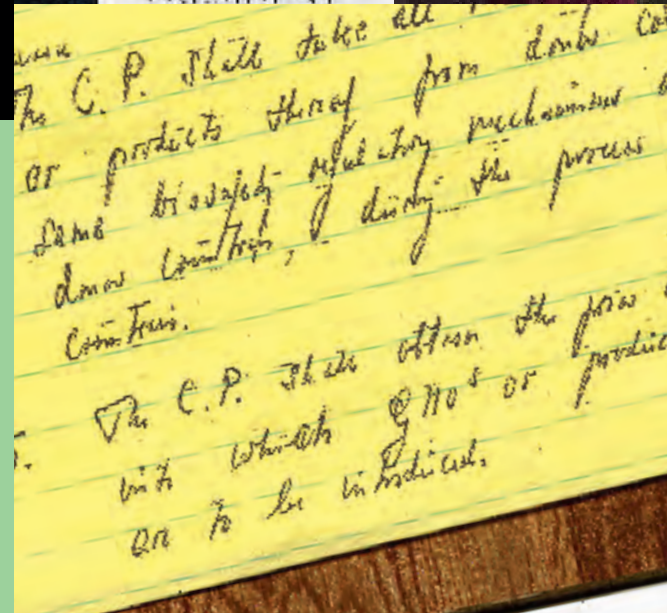 The C.P. shall take all
or products thereof from donor co
same biosafety regulatory mechanisms
donor countries, during the process
countries.
The C.P. shall obtain the prior
into which GMOs or produc
are to be introduced.